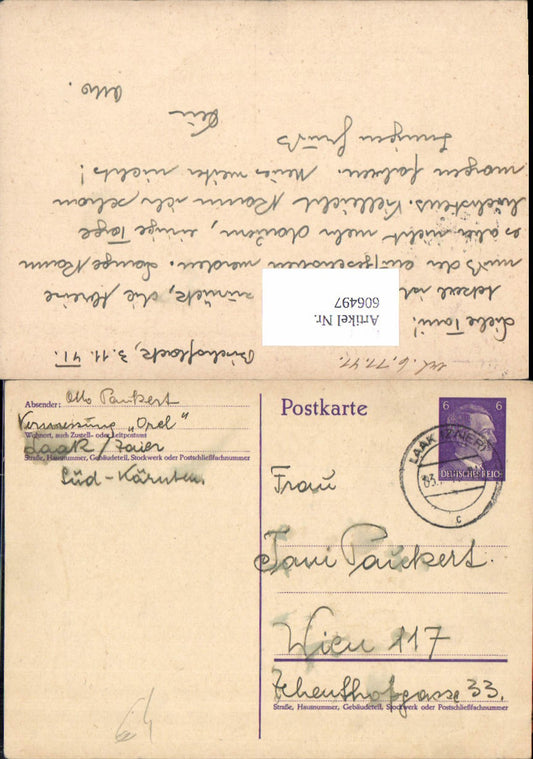 Bischoflack, 3.11.41.
erh. 6.11.41.
Liebe Tani!
ist zurück, die Kleine
muß der aufgesessen werden. Lange kann
es aber nicht mehr dauern, einige Tage
höchstens. Vielleicht kann ich schon
morgen fahren. Neues weiter nichts!
Innigen Gruß
Dein
Otto.
Artikel Nr.
606497
Absender: Otto Pauckert
Vermessung "Opel"
Wohnort, auch Zustell- oder Leitpostamt
Laak / Zaier
Straße, Hausnummer, Gebäudeteil, Stockwerk oder Postschließfachnummer
Süd-Kärnten
Postkarte
6 6
DEUTSCHES REICH
LAAK (ZAIER)
03.
c
Frau
Tani Pauckert.
Wien 117
33.
Straße, Hausnummer, Gebäudeteil, Stockwerk oder Postschließfachnummer